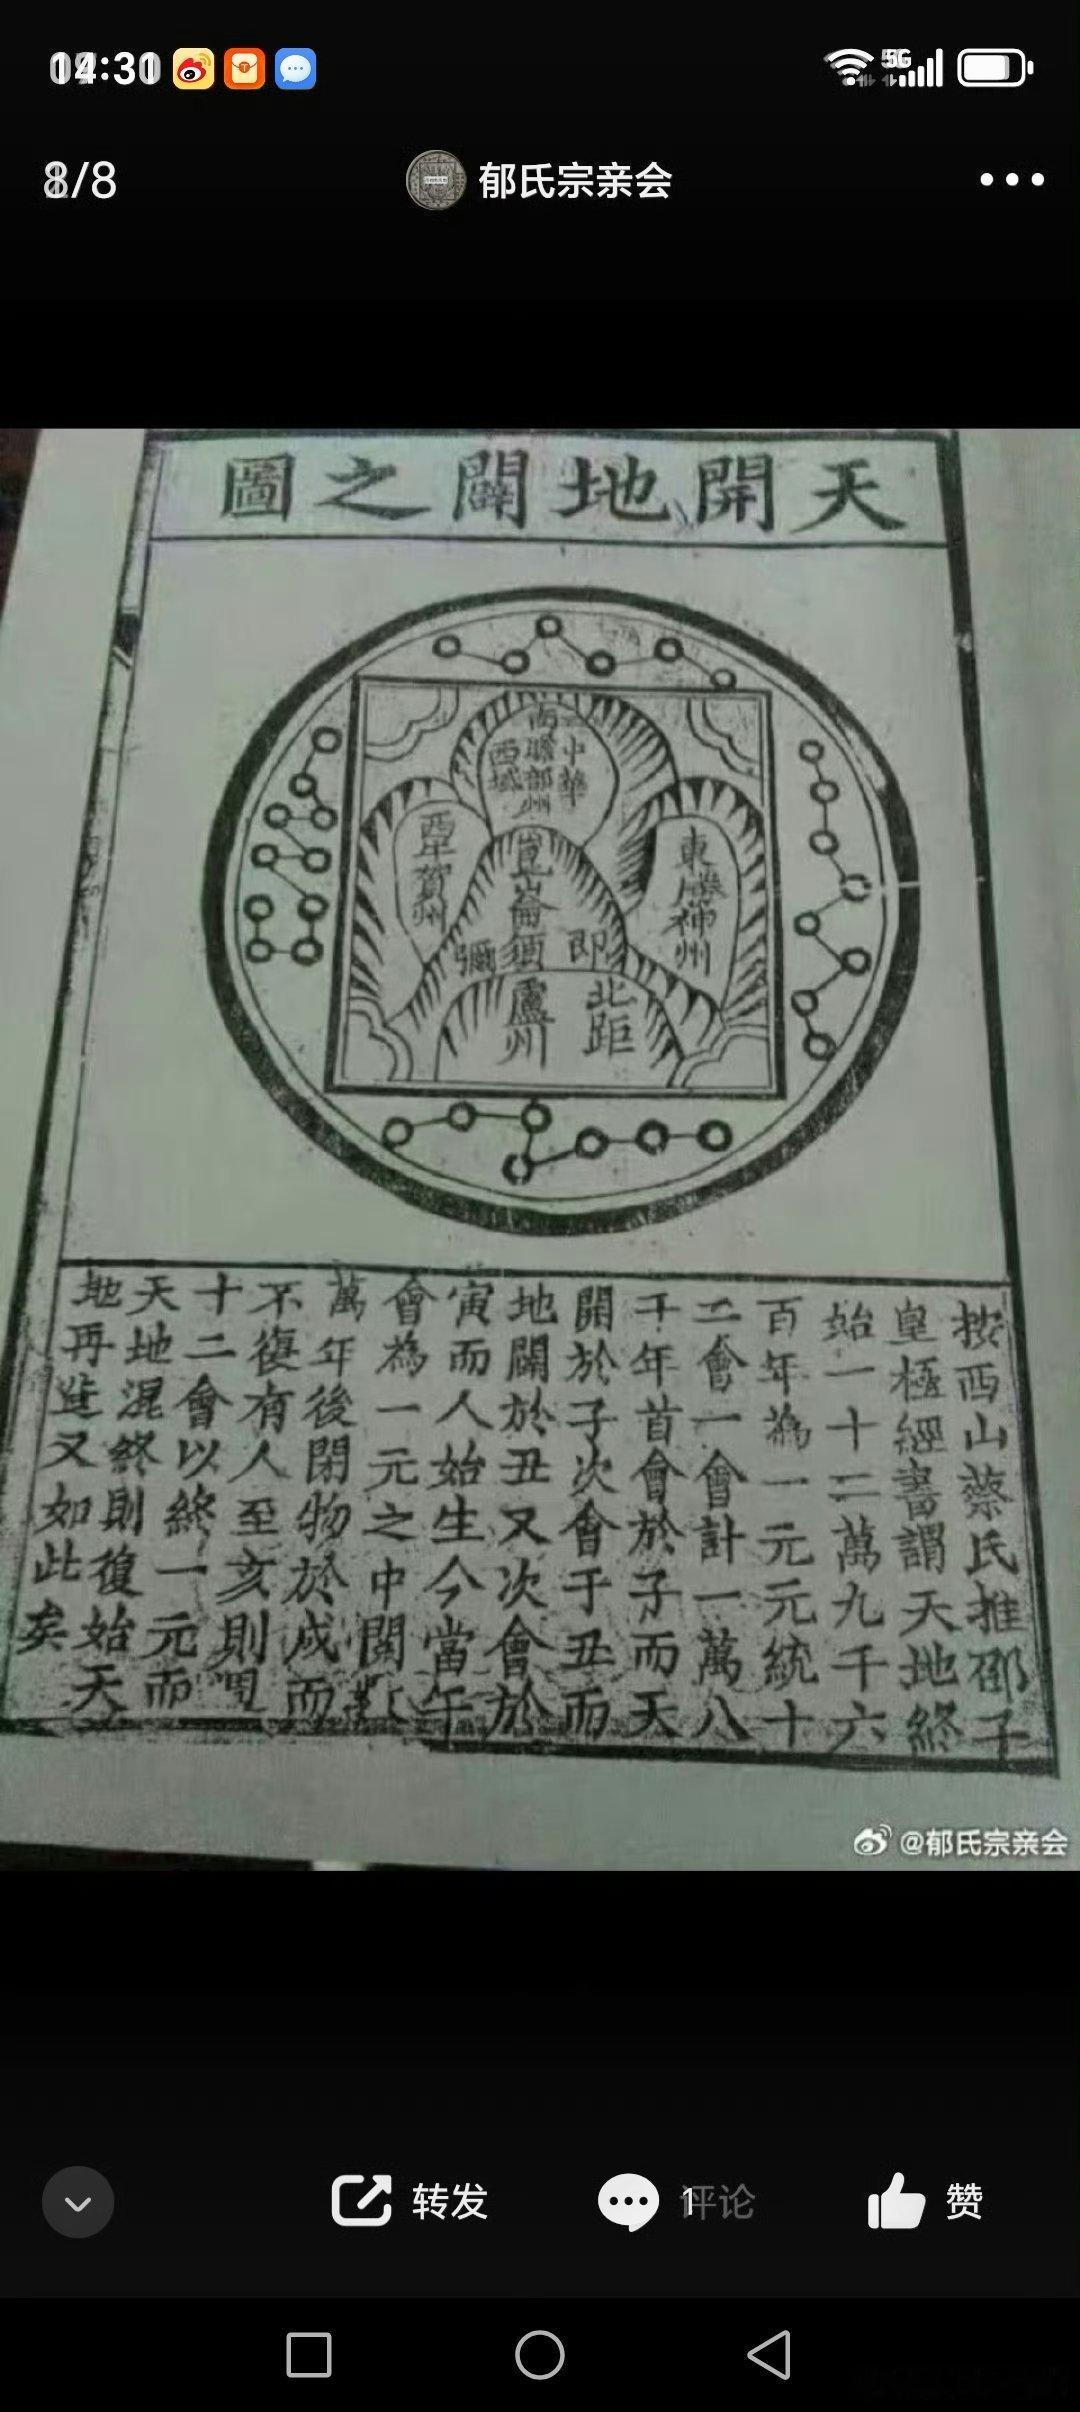 14:31
5G
8/8
郁氏宗亲会
天開地闢之圖
南贍部州
中華
西域
西牛賀州
東勝神州
崑崙
即須彌
北距盧州
按西山蔡氏推邵子
皇極經書謂天地終
始一十二萬九千六
百年為一元元統十
二會一會計一萬八
千年首會於子而天
開於子次會于丑而
地闢於丑又次會於
寅而人始生今當午
會為一元之中
萬年後閉物於戍而
不復有人至亥則
十二會以終一元而
天地混終則復始天
地再造又如此矣
@郁氏宗亲会
转发
1
评论
赞